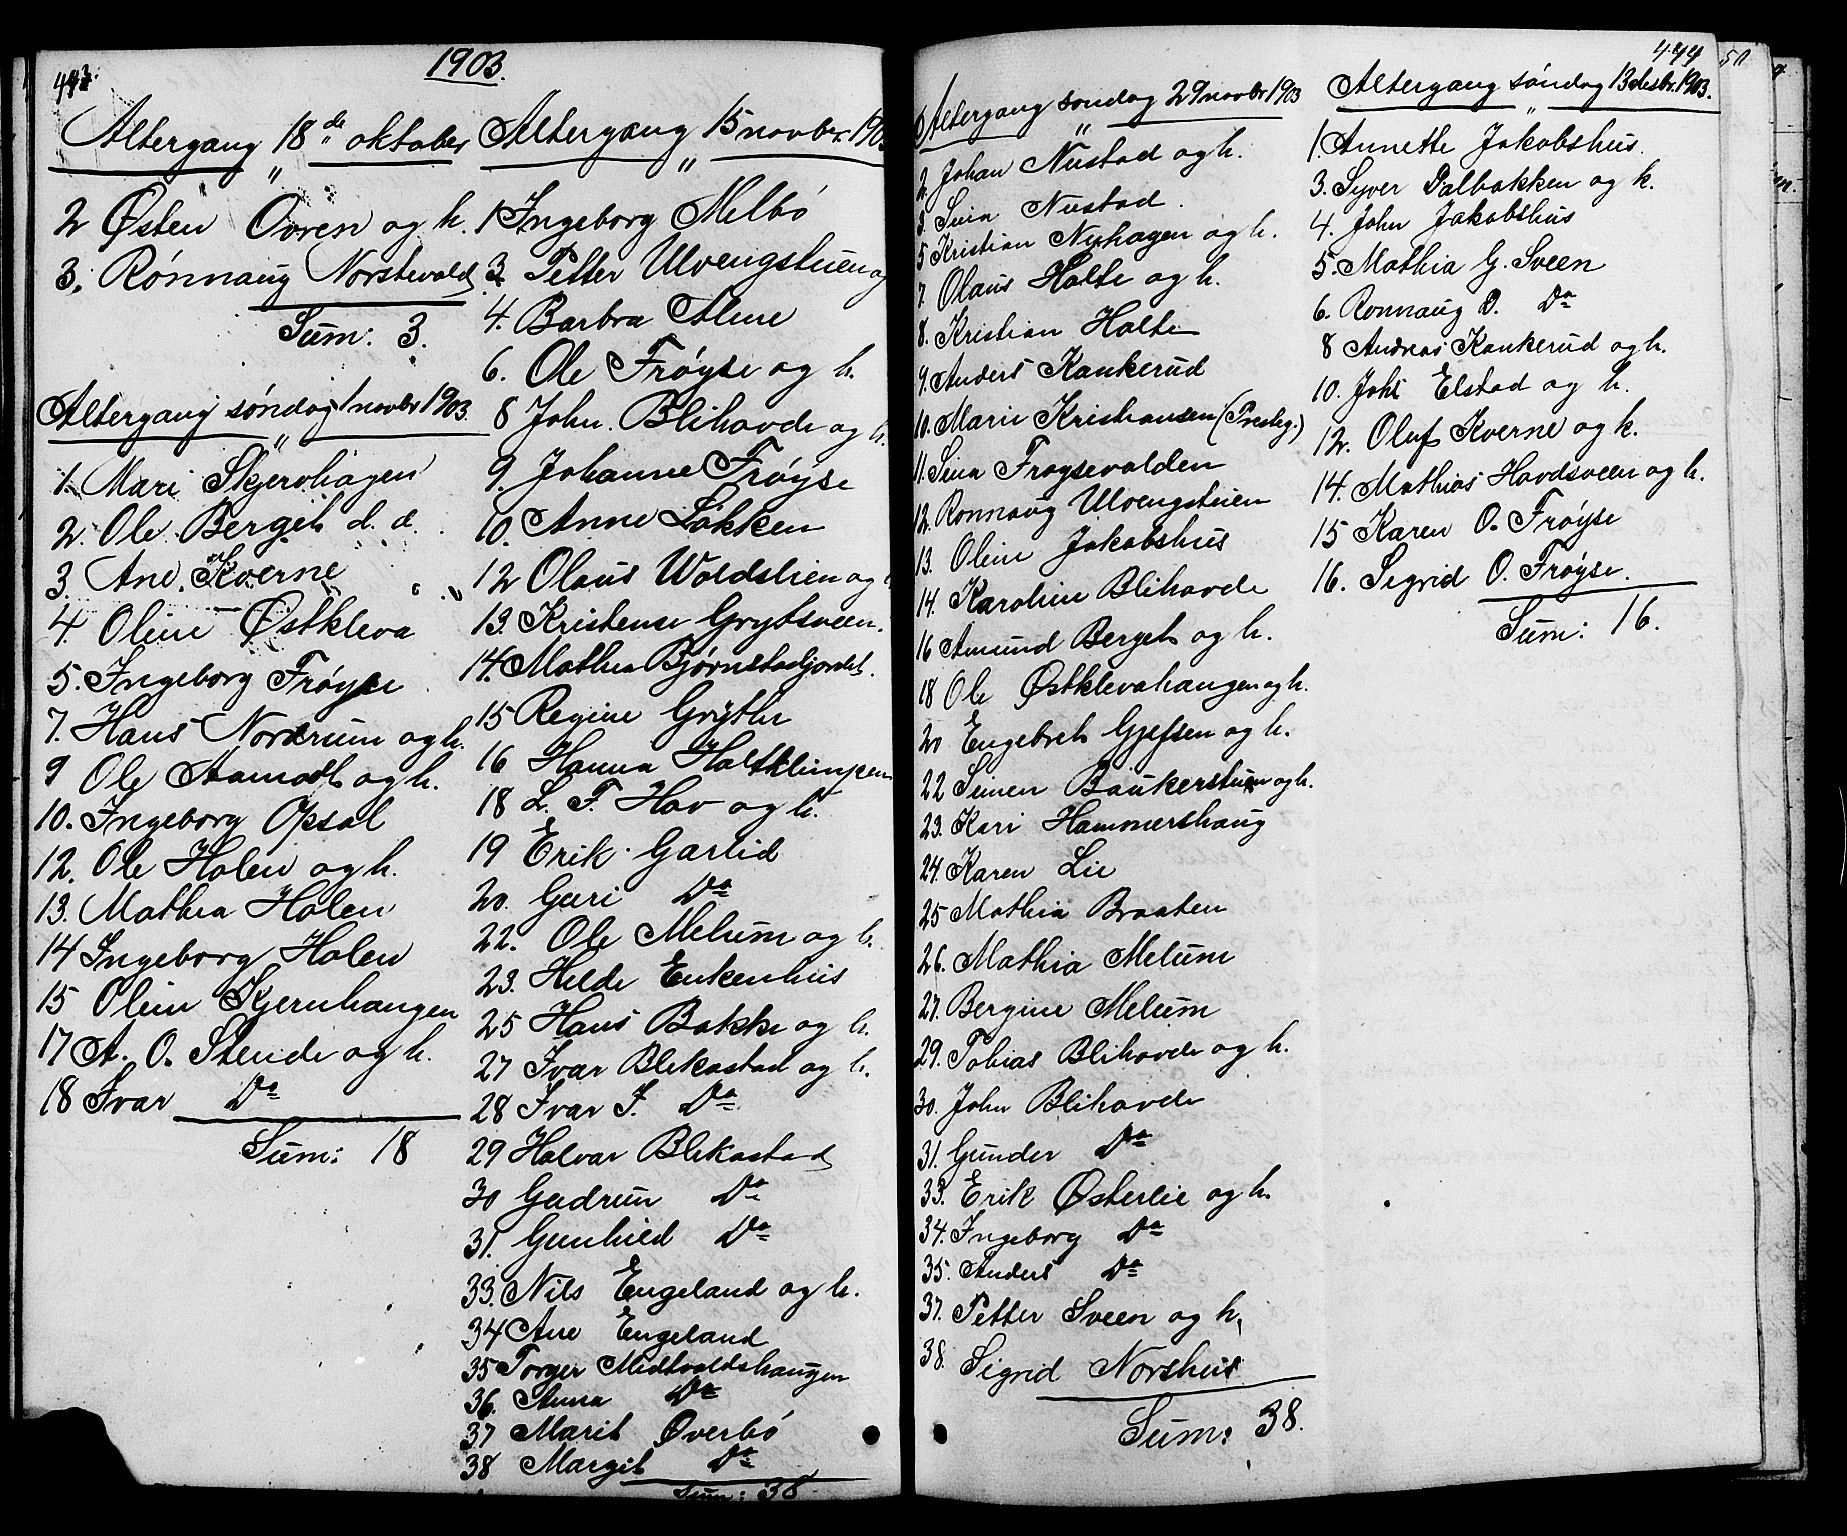 443.
1903.
Altergang 18de oktober
2 Østen Ovren og h.
3. Rónnaug Norstevold
Sum: 3.
Altergang søndag 1 novbr 1903.
1. Mari Skjervhagen
2. Ole Berget d. d.
3. Ane Kverne
4. Oline Østkleva
5. Ingeborg Frøyse
7. Hans Nordrum og h.
9 Ole Aamodt og h.
10. Ingeborg Opsal
12. Ole Holen og h.
13. Mathea Holen
14 Ingeborg Holen
15 Oline Kjernhaugen
17 A. O. Stende og h.
18 Ivar Do
Sum: 18
Altergang 15 novbr. 1903
1 Ingeborg Melbó
3. Petter Ulvengstuen og
4. Barbra Alme
6. Ole Frøyse og h.
8 John Blihovde og h.
9. Johanne Frøyse
10. Anne Løkken
12 Olaus Woldstien og
13. Kristense Grytsveen.
14. Mathea Bjørnstadjordet.
15 Regine Grythe
16 Hanna Holtklimpen
18 L. F. Hov og h.
19 Erik Garlid
20. Guri Do
22. Ole Melum og h.
23. Helde Enkenhus
25 Hans Bakke og h.
27 Ivar Blekastad og h.
28 Ivar I. Do
29 Halvar Blekastad
30 Gudrun Do
31. Gunhild Do
33. Nils Engeland og h.
34 Ane Engeland
35 Torger Midtvoldshaugen
36. Anna Do
37 Marit Øverbó
38 Margit Do
Sum: 38
444
Altergang søndag 29 novbr 1903
2. Johan Nustad og h.
3. Sina Nustad.
5 Kristian Nyhagen og h.
7. Olaus Holte og h.
8. Kristian Holte
9. Anders Kankerud
10. Marie Kristiansen (Presteg.)
11. Sina Frøysevolden
12. Ronnaug Ulvengstuen
13. Oline Jakobshus
14. Karoline Blihovde
16 Amund Berget og h.
18 Ole Østklevahaugen og h.
20 Engebret Gjefsen og h.
22 Simen Baukerstuen og h.
23. Kari Hammershaug
24. Karen Lie
25 Mathia Braaten
26. Mathia Melum
27. Bergine Melum
29. Tobias Blihovde og h.
30. John Blihovde
31. Gunder Do
33. Erik Østerlie og h.
34. Ingeborg Do
35. Anders Do
37. Petter Sveen og h.
38. Sigrid Norshus
Sum: 38.
Altergang søndag 13 desbr. 1903.
1. Annette Jakobshus.
3. Syver Dalbakken og k.
4. John Jakobshus
5. Mathia G. Sveen
6. Ronnaug O. Do
8 Andreas Kankerud og h.
10. Johs Elstad og h.
12. Oluf Kverne og k.
14. Mathias Hovdsveen og h.
15 Karen O. Frøyse
16. Sigrid O. Frøyse.
Sum: 16.